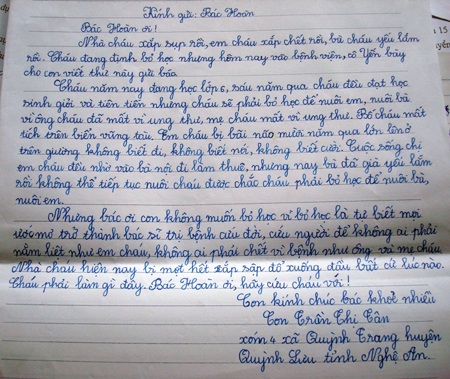 Kính gửi: Bác Hoàn
Bác Hoàn ơi!
Nhà cháu xắp sụp rồi, em cháu xắp chết rồi, bà cháu yếu lắm
rồi. Cháu đang định bỏ học nhưng hôm nay vào bệnh viện, cô Yến bày
cho con viết thư này gửi bác.
Cháu năm nay đang học lớp 6, sáu năm qua cháu đều đạt học
sinh giỏi và tiên tiến nhưng cháu sẽ phải bỏ học để nuôi em, nuôi bà
vì ông cháu đã mất vì ung thư, mẹ cháu mất vì ung thư. Bố cháu mất
tích trên biển vũng tàu. Em cháu bị bãi não mười năm qua lớn lên ở
trên giường không biết đi, không biết nói, không biết cười. Cuộc sống chị
em cháu đều nhờ vào bà nội đi làm thuê, nhưng nay bà đã già yếu lắm
rồi không thể tiếp tục nuôi cháu được chắc cháu phải bỏ học để nuôi bà,
nuôi em.
Nhưng bác ơi con không muốn bỏ học vì bỏ học là từ biết mọi
ước mơ trở thành bác sĩ trị bệnh cứu đời, cứu người để không ai phải
nằm liệt như em cháu, không ai phải chết vì bệnh như ông và mẹ cháu
Nhà cháu hiện nay bị mọt hết xắp sập đổ xuống đầu bất cứ lúc nào.
Cháu phải làm gì đây. Bác Hoàn ơi, hãy cứu cháu với!
Con kính chúc bác khoẻ nhiều
Con Trần Thị Tân
xóm 4 xã Quỳnh Trang huyện
Quỳnh Lưu tỉnh Nghệ An.